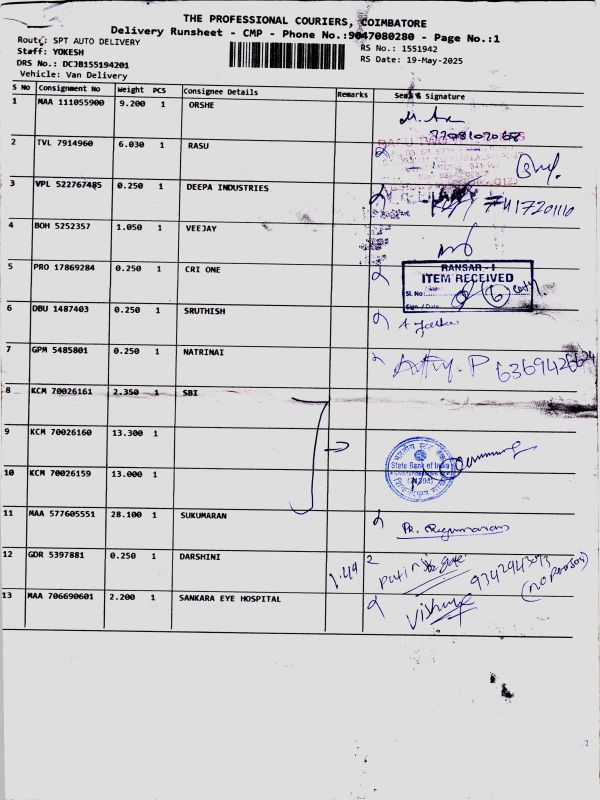 THE PROFESSIONAL COURIERS, COIMBATORE
Delivery Runsheet - CMP - Phone No.:9047080280 - Page No.:1
Route: SPT AUTO DELIVERY
Staff: YOKESH
DRS No.: DCJB155194201
Vehicle: Van Delivery
RS No.: 1551942
RS Date: 19-May-2025
S No Consignment No Weight PCS Consignee Details Remarks Seal & Signature
1 MAA 111055900 9.200 1 ORSHE
2 TVL 7914960 6.030 1 RASU
3 VPL 522767485 0.250 1 DEEPA INDUSTRIES
4 BOH 5252357 1.050 1 VEEJAY
5 PRO 17869284 0.250 1 CRI ONE
RANSAR - I
ITEM RECEIVED
Sl. No
Sign. / Date
6 DBU 1487403 0.250 1 SRUTHISH
7 GPM 5485801 0.250 1 NATRINAI
8 KCM 70026161 2.350 1 SBI
9 KCM 70026160 13.300 1
State Bank of India
10 KCM 70026159 13.000 1
11 MAA 577605551 28.100 1 SUKUMARAN
12 GDR 5397881 0.250 1 DARSHINI 1.49 9342943073
(no person)
13 MAA 706690601 2.200 1 SANKARA EYE HOSPITAL